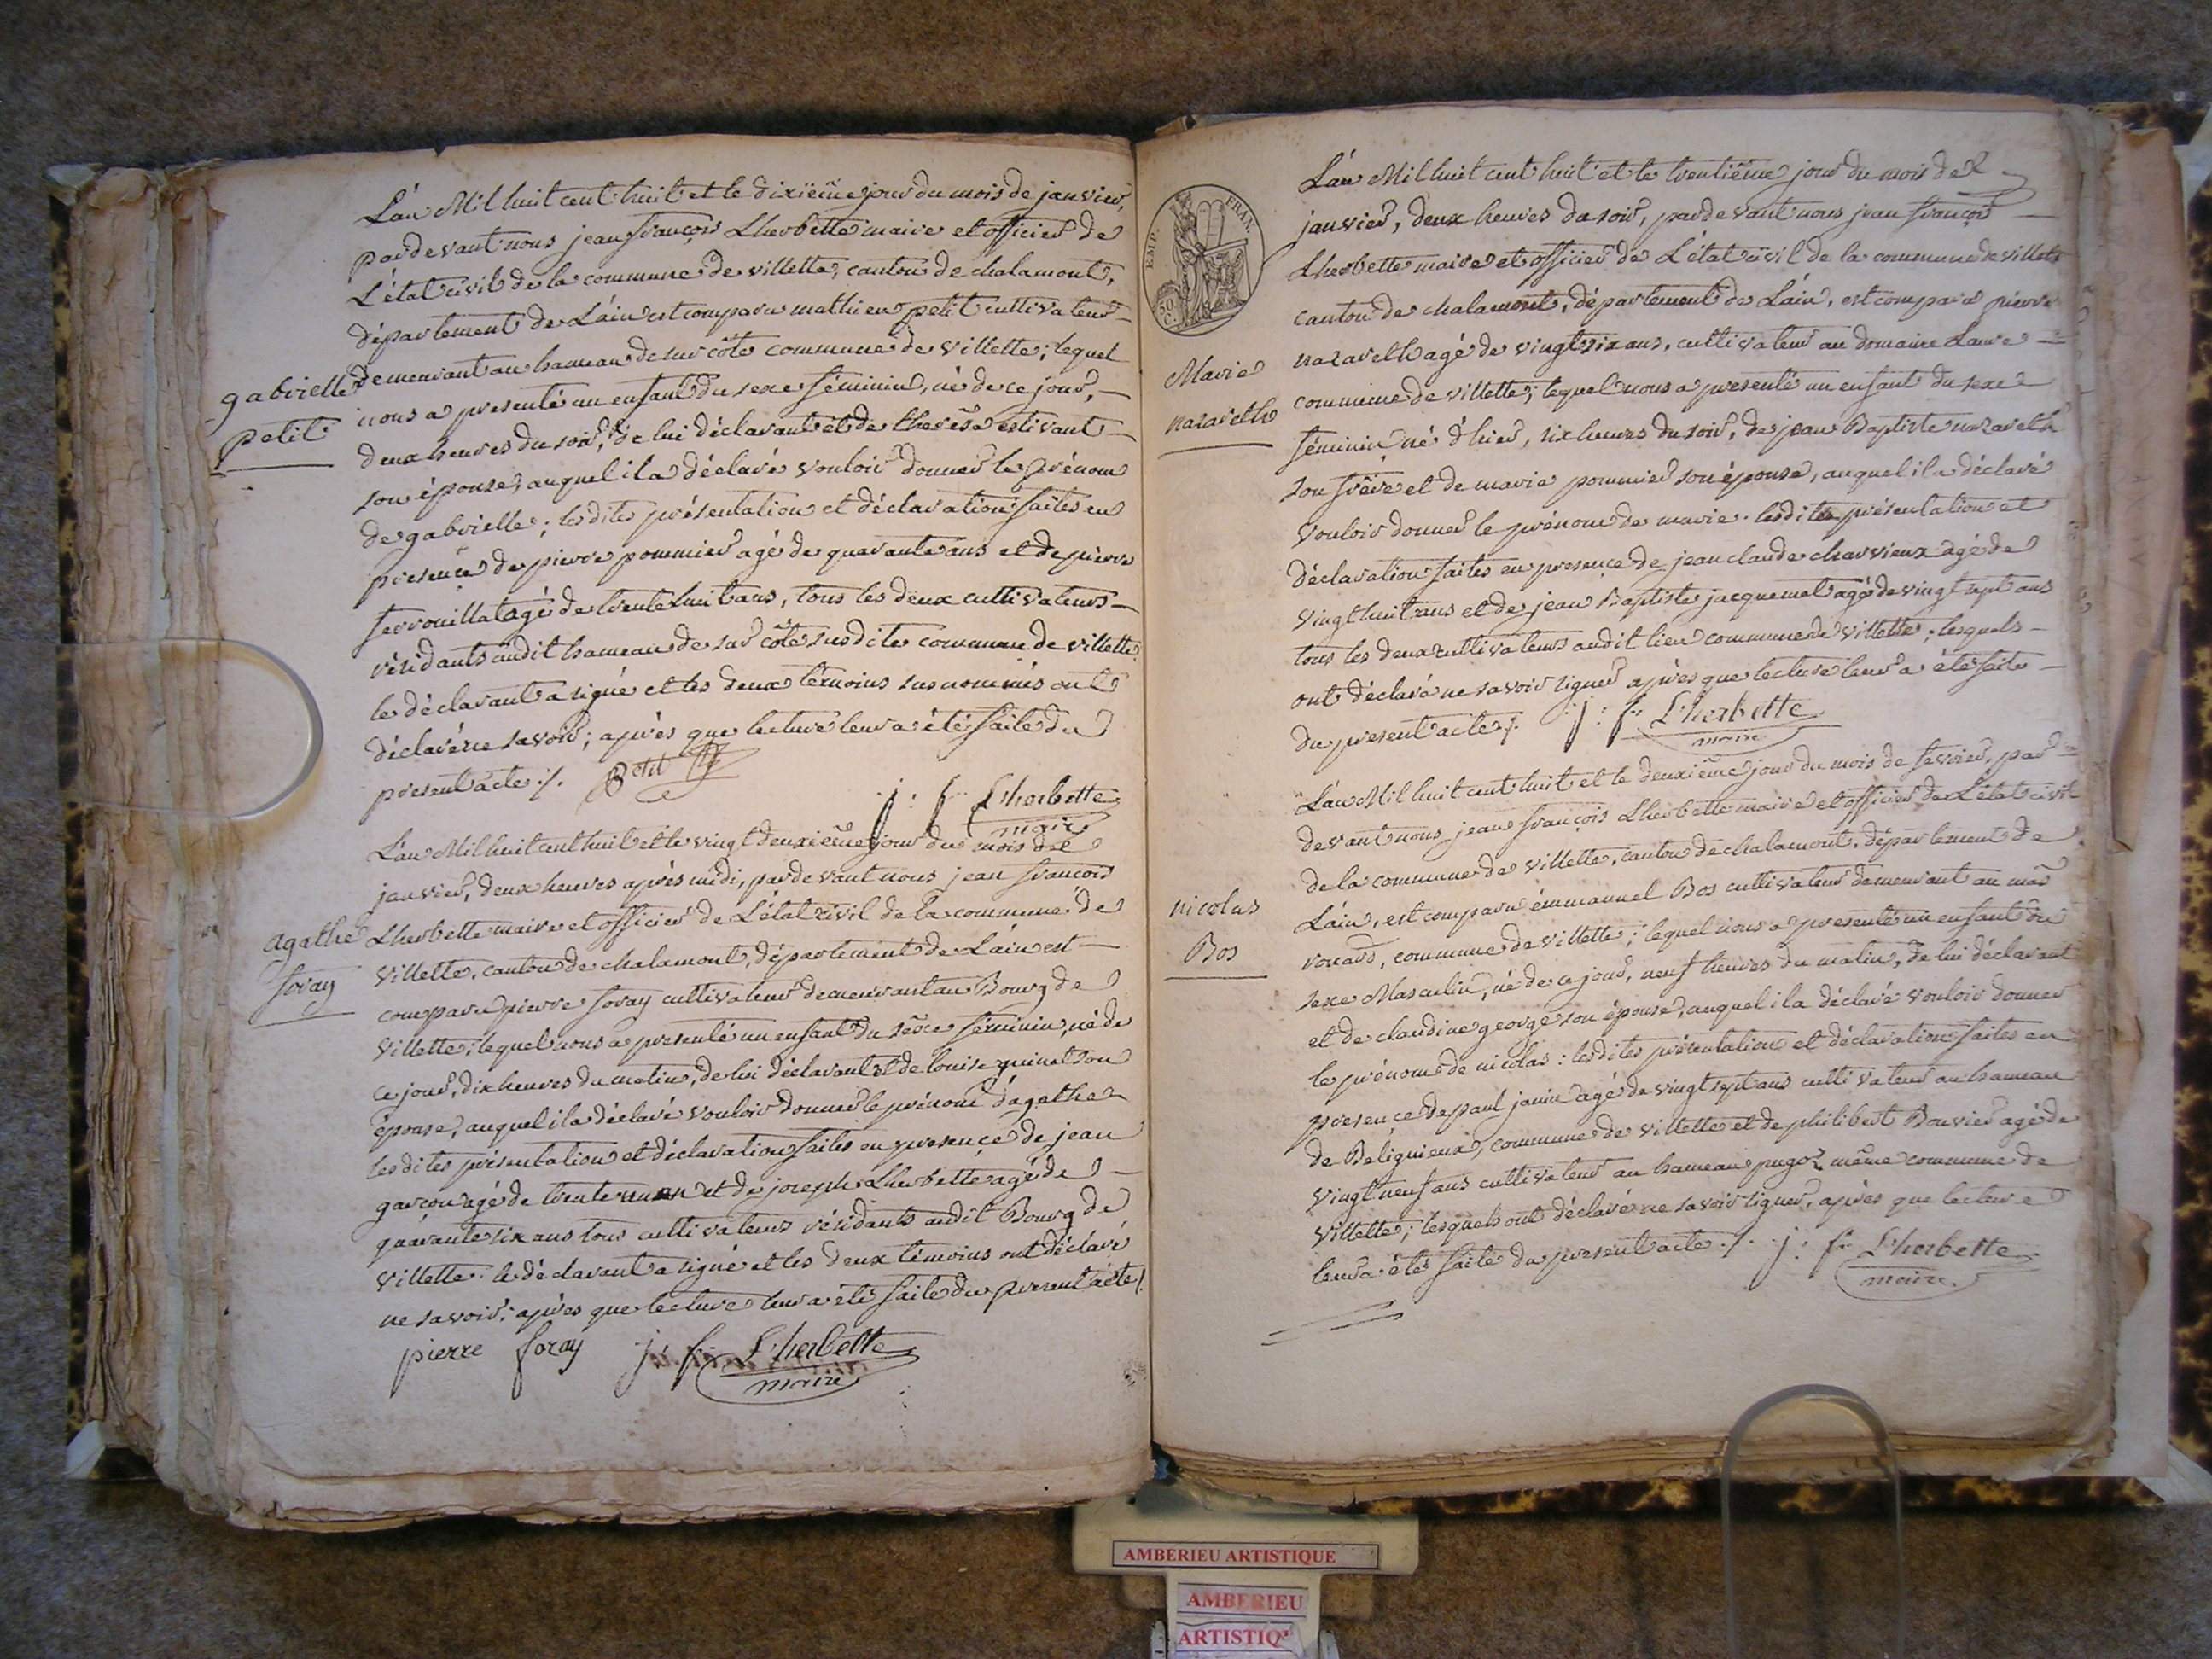 L'an Mil huit cent huit et le dixième jour du mois de janvier,
pardevant nous jean françois Lherbette maire et officier de
L'état civil de la commune de villette, canton de chalamont,
département de L'ain est comparu mathieu petit cultivateur
demeurant au hameau de sur côte commune de villette; lequel
gabrielle
petit
nous a presenté un enfant du sexe féminin, né de ce jour,
deux heures du soir, de lui déclarant et de theresa estivant
son épouse, auquel il a déclaré vouloir donner le prénom
de gabrielle; lesdites présentation et déclaration faites en
presence de pierre pommier agé de quarante ans et de pierre
ferrouillat agé de trente huit ans, tous les deux cultivateurs
résidants audit hameau de sur côte susdite commune de villette
le déclarant a signé et les deux témoins susnommés ont
déclaré ne savoir; après que lecture leur a été faite du
present acte ./. Petit
j: f: Lherbette
maire
L'an Mil huit cent huit et le vingt deuxième jour du mois de
janvier, deux heures après midi, pardevant nous jean françois
agathe
foray
Lherbette maire et officier de L'état civil de la commune de
villette, canton de chalamont, département de L'ain est
comparu pierre foray cultivateur demeurant au Bourg de
villette; lequel nous a presenté un enfant du sexe féminin, né de
ce jour, dix heures du matin, de lui déclarant et de louise quinat son
épouse, auquel il a déclaré vouloir donner le prénom d'agathe
lesdites présentation et déclaration faites en presence de jean
garçon agé de trente un an et de joseph Lherbette agé de
quarante six ans tous cultivateurs résidants audit Bourg de
villette. le déclarant a signé et les deux témoins ont déclaré
ne savoir; après que lecture leur a été faite du present acte /.
pierre foray j: f: Lherbette
maire
EMP. FRAN.
50
C.
L'an Mil huit cent huit et le trentième jour du mois de
janvier, deux heures du soir, pardevant nous jean françois
Lherbette maire et officier de L'état civil de la commune de villette
canton de chalamont, département de L'ain, est comparu pierre
Marie
nazareth
nazareth agé de vingt six ans, cultivateur au domaine
commune de villette; lequel nous a presenté un enfant du sexe
féminin né d'hier, six heures du soir, de jean Baptiste nazareth
son frère et de marie pommier son épouse, auquel il a déclaré
vouloir donner le prénom de marie. lesdites présentation et
déclaration faites en presence de jean claude charvieux agé de
vingt huit ans et de jean Baptiste jacquemet agé de vingt sept ans
tous les deux cultivateurs audit lieu commune de villette; lesquels
ont déclaré ne savoir signer après que lecture leur a été faite
du present acte /. j: f: Lherbette
maire
L'an Mil huit cent huit et le deuxième jour du mois de fevrier, par
devant nous jean françois Lherbette maire et officier de L'état civil
de la commune de villette, canton de chalamont, département de
nicolas
Bos
L'ain, est comparu émmanuel Bos cultivateur demeurant au mas
rouard, commune de villette; lequel nous a presenté un enfant du
sexe Masculin, né de ce jour, neuf heures du matin, de lui déclarant
et de claudine george son épouse, auquel il a déclaré vouloir donner
le prénom de nicolas: lesdites présentation et déclaration faites en
presence de paul janin agé de vingt sept ans cultivateur au hameau
de Beligneux, commune de villette et de philibert Bouvier agé de
vingt neuf ans cultivateur au hameau pugoz même commune de
villette; lesquels ont déclaré ne savoir signer, après que lecture
leur a été faite du present acte ./. j: f: Lherbette
maire
AMBERIEU ARTISTIQUE
AMBERIEU
ARTISTIQ